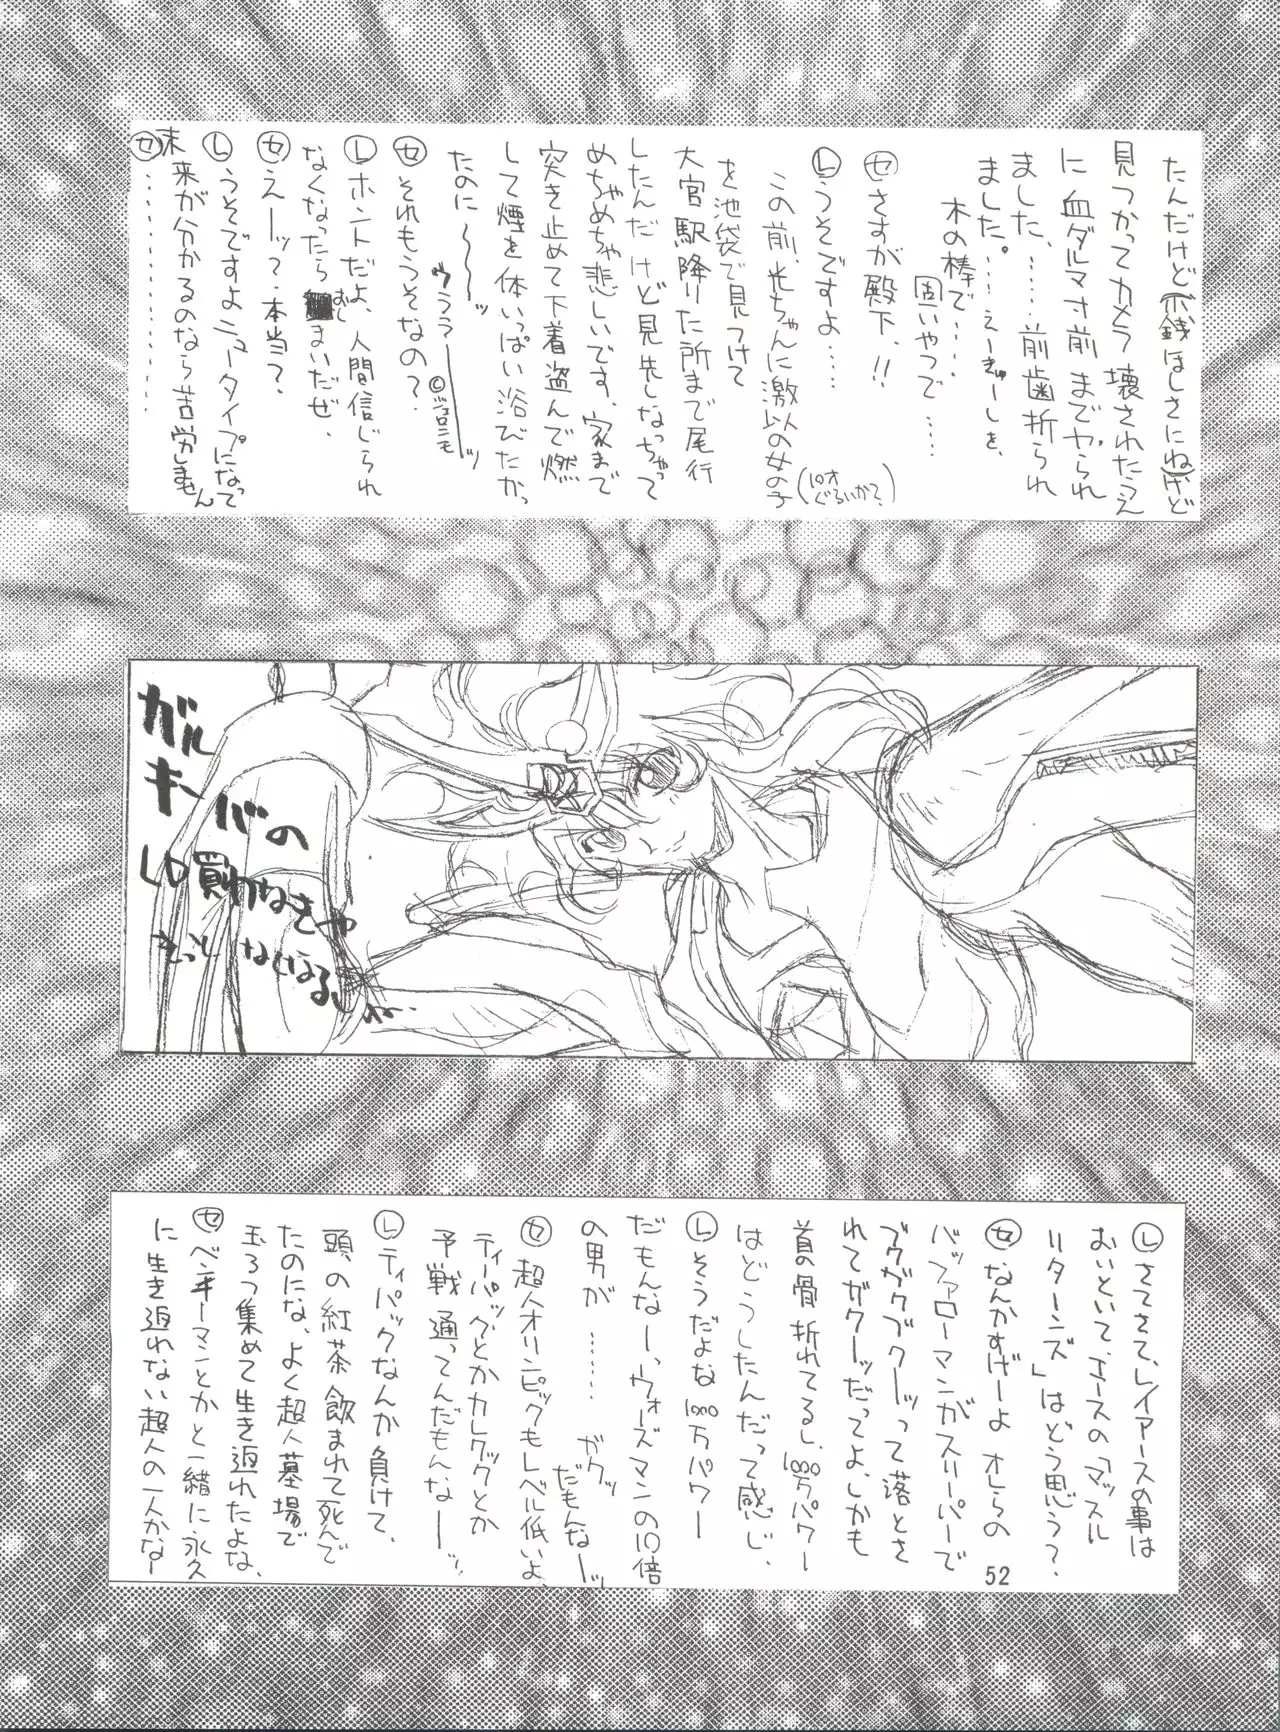 たんだけど(小銭ほしさにね)けど
見つかってカメラ壊されたうえ
に血ダルマ寸前までやられ
ました、……前歯折られ
ました。……えーきゅーしを、
木の棒で……
固いやつで……
㋝さすが殿下、!!
Ⓛうそですよ……
この前、光ちゃんに激似の女の子
(10才ぐらいかな?)
を池袋で見つけて
大宮駅降りた所まで尾行
したんだけど見失なっちゃって
めちゃめちゃ悲しいです、家まで
突き止めて下着盗んで燃
して煙を体いっぱい浴びたかっ
たのに〜〜〜ッ
ウララーーーッ
©ジェロニモ
㋝それもうそなの?
Ⓛホントだよ、人間信じられ
なくなったらおしまいだぜ、
㋝えーーッ?本当?
Ⓛうそですよニュータイプになって
未来が分かるのなら苦労しません
㋝…………
ガルキーバの
LD買わなきゃ
きっとなくなるしねー
Ⓛさてさて、レイアースの事は
おいといて、エースの「マッスル
リターンズ」はどう思う?
㋝なんかすげーよ オレらの
バッファローマンがスリーパーで
ブクブクブクーッって落とさ
れてガクーッだってよ、しかも
首の骨折れてるし、1000万パワー
はどうしたんだって感じ、
Ⓛそうだよな1000万パワー
だもんなーっ、ウォーズマンの10倍
の男が……ガクッ
だもんなーッ
㋝超人オリンピックもレベル低いよ、
ティーパックとかカレクックとか
予戦通ってんだもんなーッ
Ⓛティパックなんか負けて、
頭の紅茶飲まれて死んで
たのにな、よく超人墓場で
玉3つ集めて生き返れたよな、
㋝ベンキーマンとかと一緒に永久
に生き返れない超人の一人かなー
52